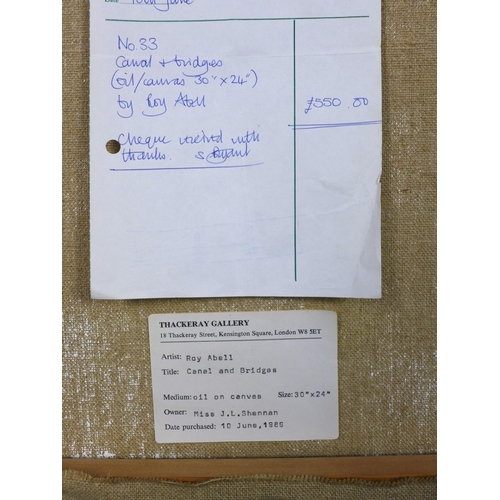 Date 10th June
No. 33
Canal & bridges
(oil/canvas 30" x 24")
by Roy Abell
£550.00
Cheque received with
thanks. S Bryant
THACKERAY GALLERY
18 Thackeray Street, Kensington Square, London W8 5ET
Artist: Roy Abell
Title: Canal and Bridges
Medium: oil on canvas Size: 30"x24"
Owner: Miss J.L.Shennan
Date purchased: 10 June,1986